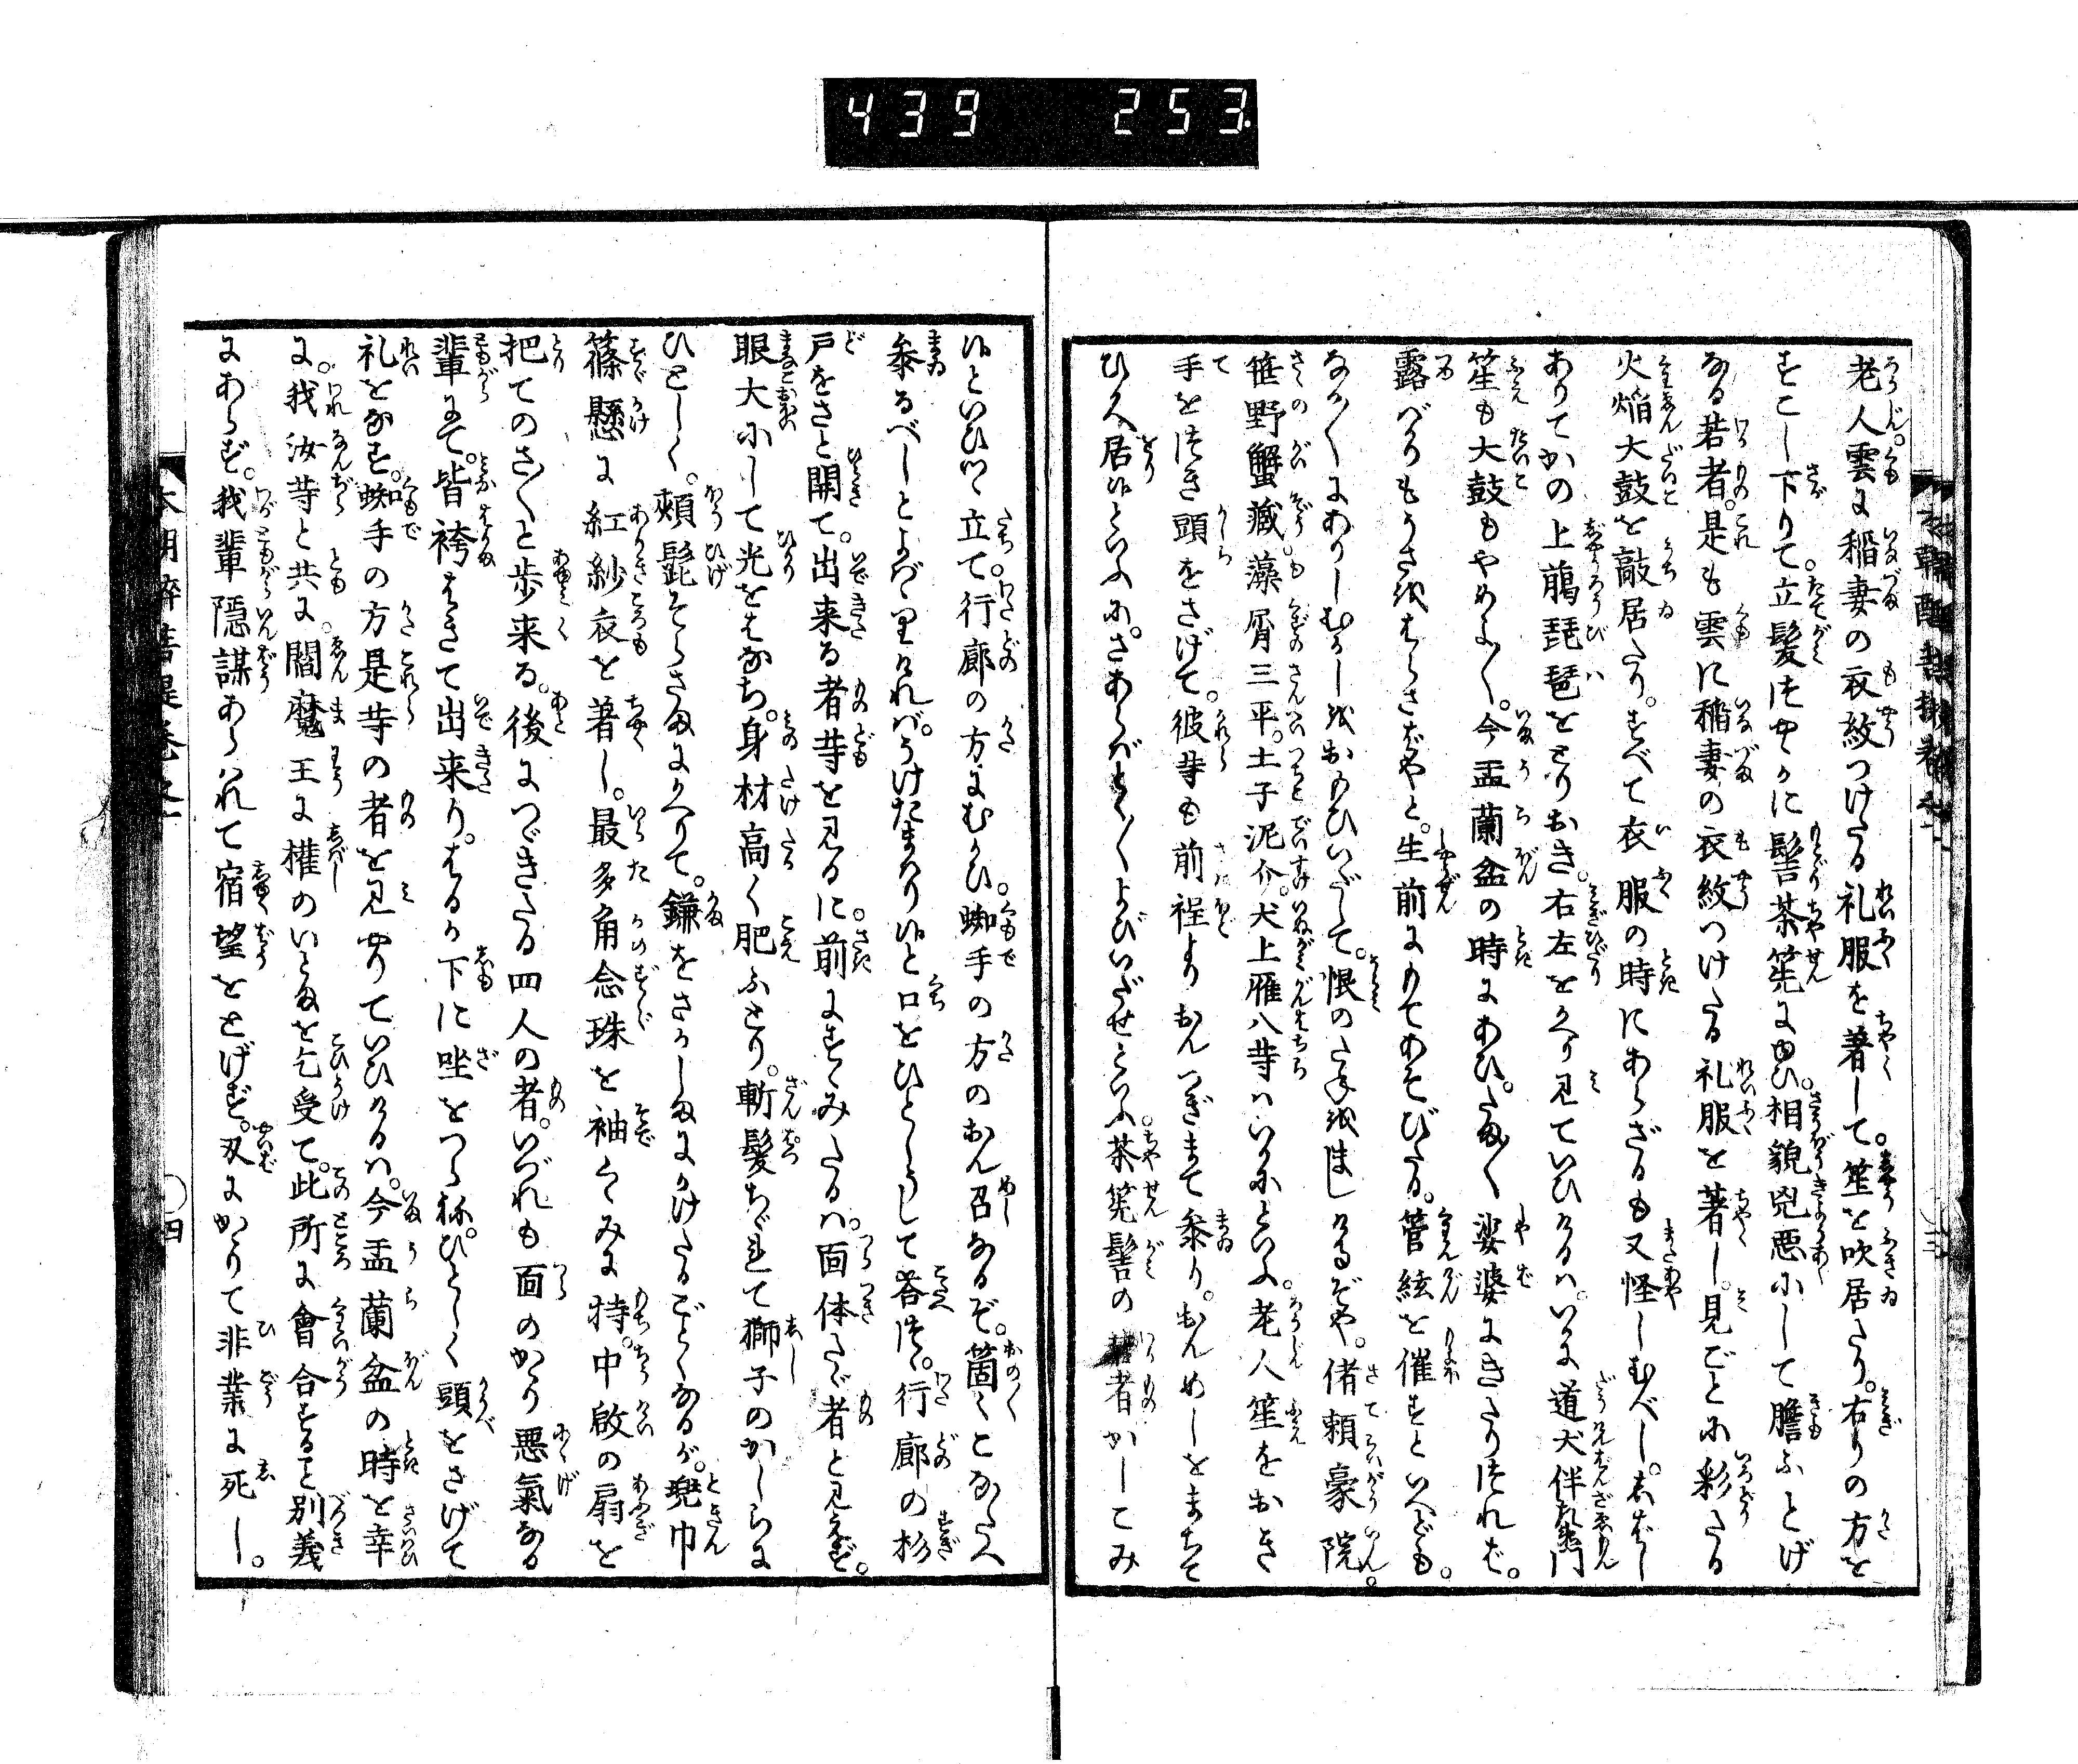 439 253
老人。雲に稲妻の衣紋つけたる礼服を著して。笙を吹居たり。右りの方を
すこし下りて。立髪つややかに髻茶筅にゆひ。相貌兇悪にして膽ふとげ
なる若者。是も雲に稲妻の衣紋つけたる礼服を著し。見ごとに彩たる
火焔大鼓を敲居たり。すべて衣服の時にあらざるも又怪しむべし。しばし
ありてかの上﨟琵琶をとりおき。右左をかへり見ていひけるは。いかに道犬伴左衛門
笙も大鼓もやめよ〳〵。今盂蘭盆の時にあひ。たま〳〵娑婆にきたりつれど。
露ばかりもうさをはらさばやと。生前にめてあそびたる。管絃を催すといへども。
なか〳〵にありしむかしをおもひいだして。恨のたねをましけるぞや。偖頼豪院。
笹野蟹蔵藻屑三平。土子泥介。犬上雁八等はいかにといふ。老人笙をおき
手をつき頭をさげて。彼等も前程よりおんつぎまで參り。おんめしをまちて
ひかへ居侍といふに。さあらばとく〳〵よびいだせといふ。茶筅髻の若者かしこみ
侍といひつゝ立て。行廊の方にむかひ。蜘手の方のおん召なるぞ。箇〻こなたへ
參るべしとよばゝりければ。うけたまはり侍と口をひとしうして荅つ。行廊の杉
戸をさと開て。出来る者等を見るに。前にすゝみたるは。面体たゞ者と見えず。
眼大にして光をはなち。身材高く肥ふとり。斬髪ちゞれて獅子のかしらに
ひとしく。頬髭そらさまにかへりて。鎌をさかしまにかけたるごとくなるが。兜巾
篠懸に紅紗衣を著し。最多角念珠を袖くゝみに持。中啟の扇を
把てのさ〳〵と歩来る。後につゞきたる四人の者。いづれも面のかゝり悪氣なる
輩にて。皆袴をはきて出来り。はるか下に坐をつらね。ひとしく頭をさげて
礼をなす。蜘手の方是等の者を見やりていひけるは。今盂蘭盆の時を幸
に。我汝等と共に。閻魔王に権のいとまを乞受て。此所に會合すること別義
にあらず。我輩隠謀あらはれて宿望をとげず。刄にかゝりて非業に死し。
本朝酔菩提巻之
四